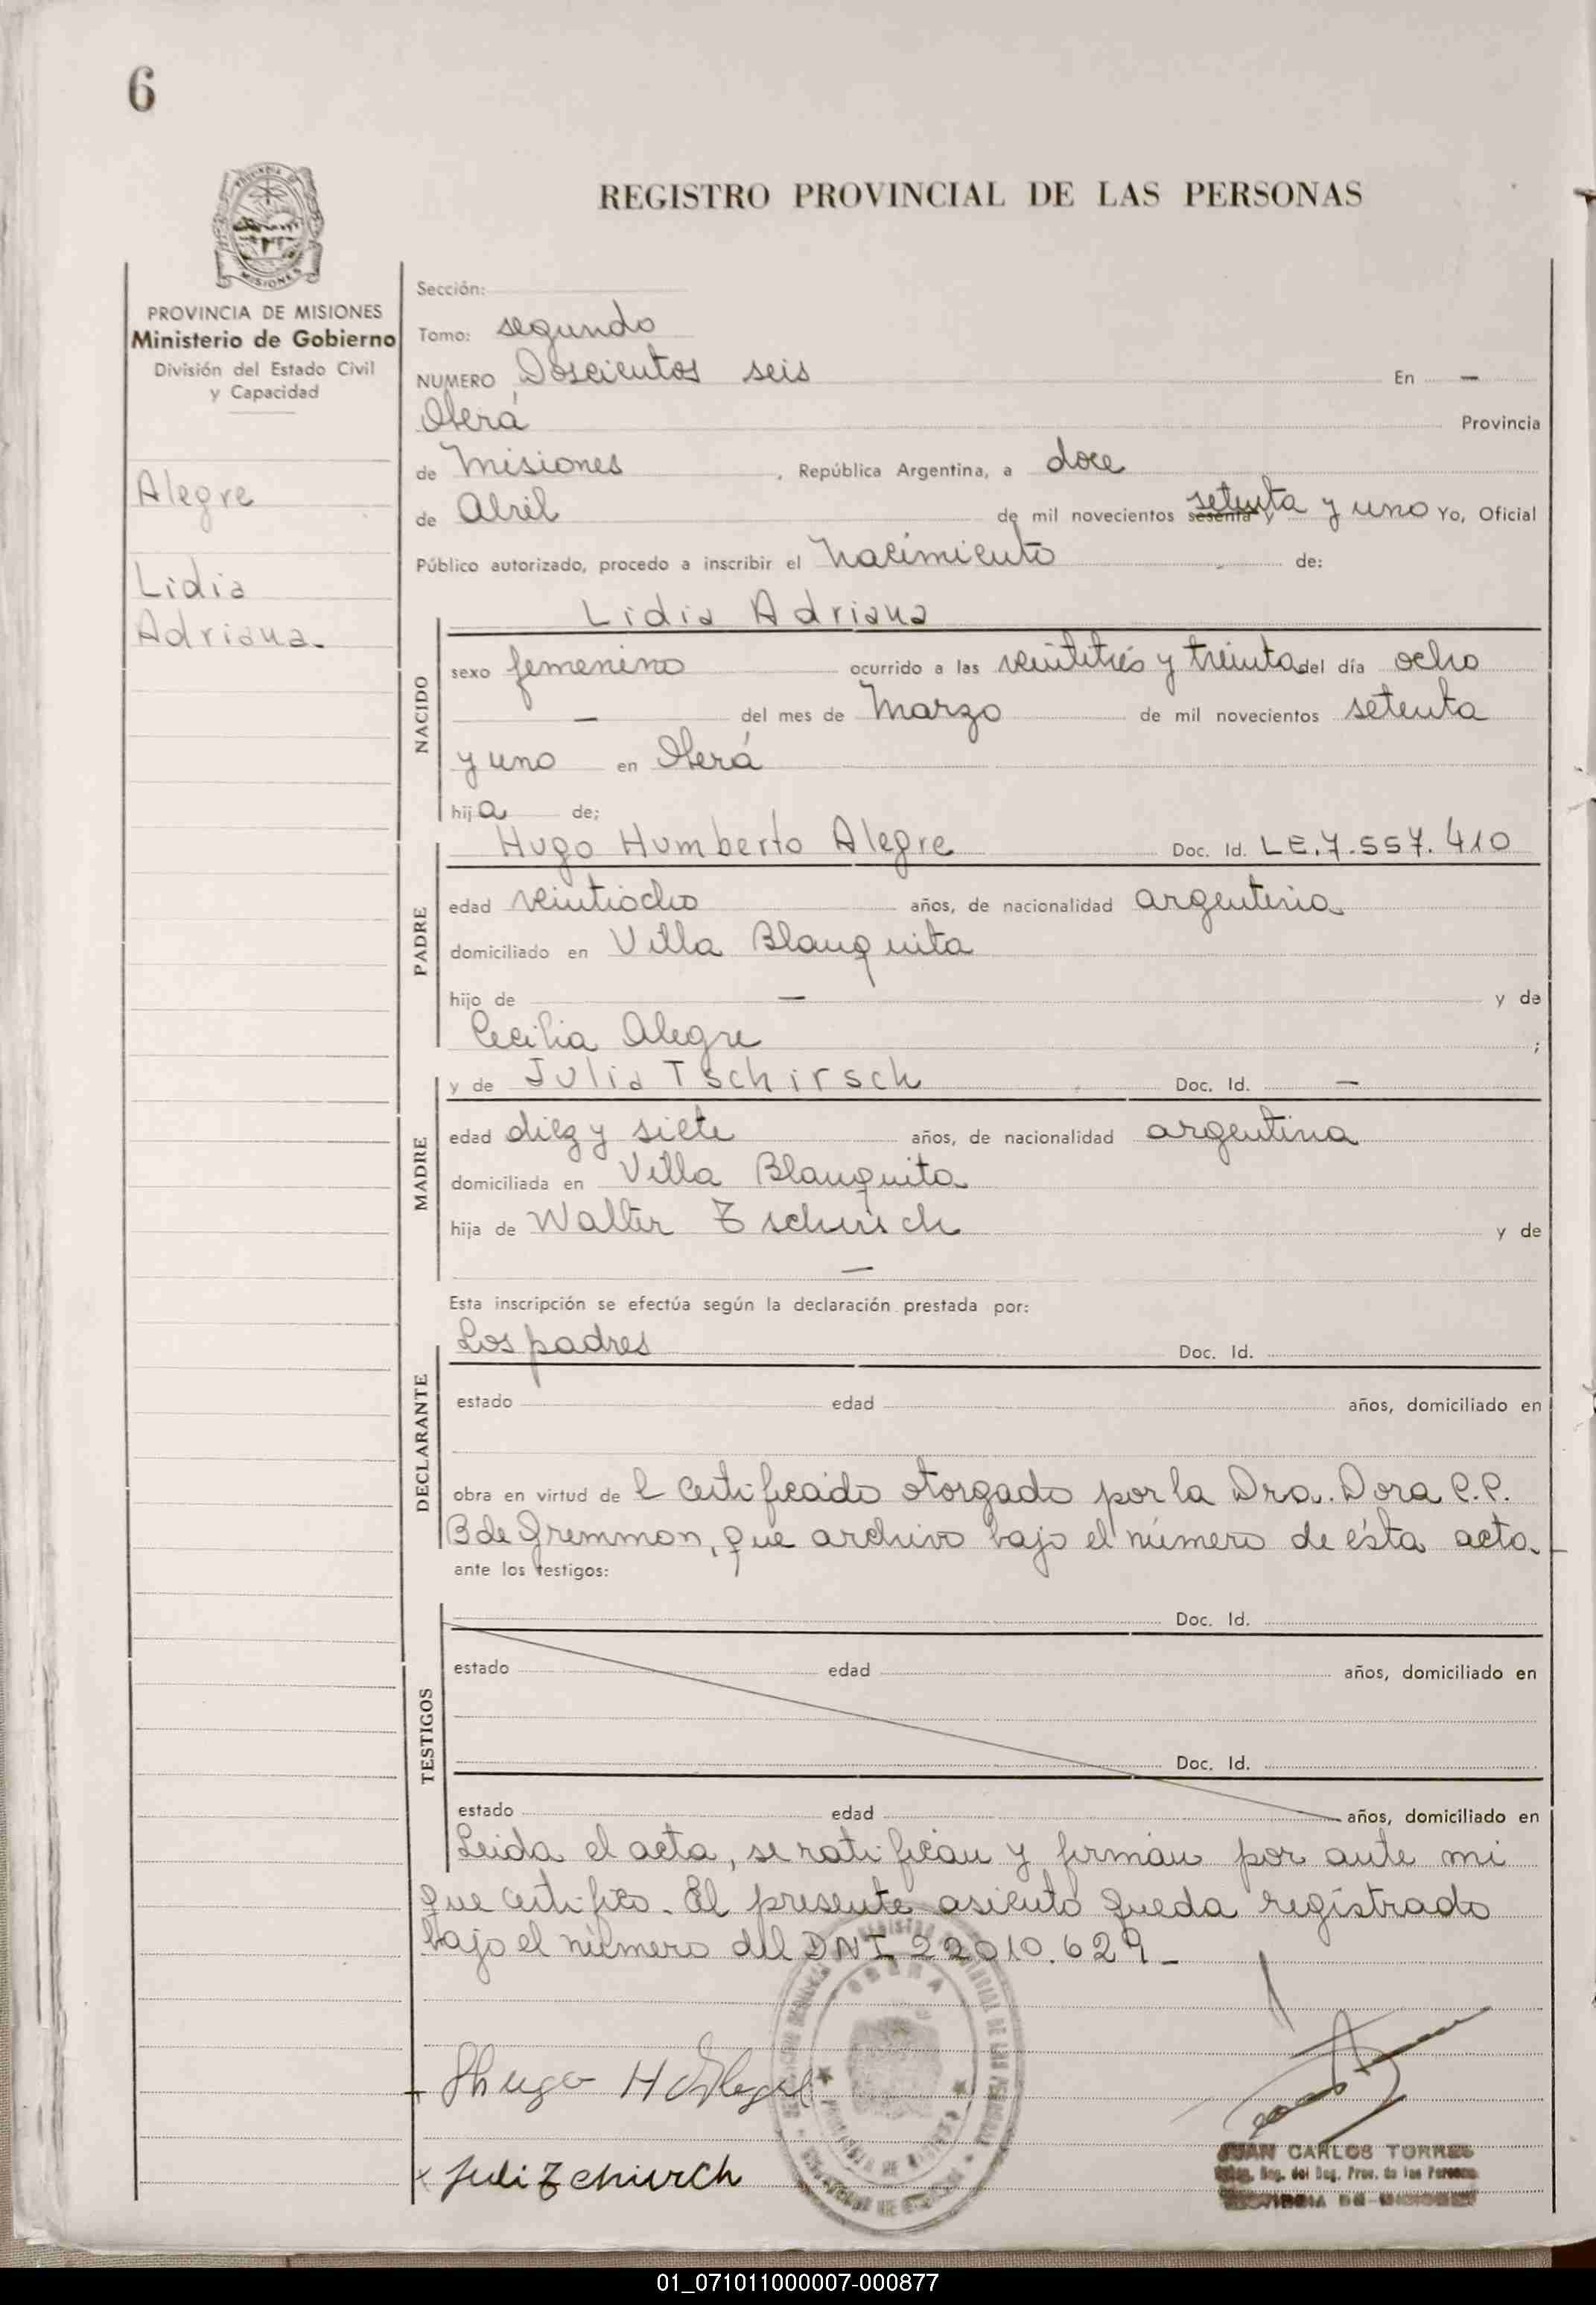 6
REGISTRO PROVINCIAL DE LAS PERSONAS
PROVINCIA DE MISIONES
Ministerio de Gobierno
División del Estado Civil
y Capacidad
Alegre
Lidia
Adriana.
Sección:
Tomo: segundo
NUMERO Doscientos seis En —
Oberá Provincia
de Misiones, República Argentina, a doce
de Abril de mil novecientos sesenta y setenta y uno Yo, Oficial
Público autorizado, procedo a inscribir el Nacimiento de:
NACIDO
Lidia Adriana
sexo femenino ocurrido a las veintitrés y treinta del día ocho
— del mes de Marzo de mil novecientos setenta
y uno en Oberá
hija de;
PADRE
Hugo Humberto Alegre Doc. Id. L.E. 7.557.410
edad veintiocho años, de nacionalidad argentina
domiciliado en Villa Blanquita
hijo de — y de
Cecilia Alegre ;
MADRE
y de Julia Tschirsch Doc. Id. —
edad diez y siete años, de nacionalidad argentina
domiciliada en Villa Blanquita
hija de Walter Tschirsch y de
—
Esta inscripción se efectúa según la declaración prestada por:
DECLARANTE
Los padres Doc. Id.
estado edad años, domiciliado en
obra en virtud de l certificado otorgado por la Dra. Dora C.P.
B de Gremmon, que archivo bajo el número de ésta acta.
ante los testigos:
TESTIGOS
Doc. Id.
estado edad años, domiciliado en
Doc. Id.
estado edad años, domiciliado en
Leida el acta, se ratifican y firman por ante mi
que certifico. El presente asiento queda registrado
bajo el número del DNI 22010.629_
Hugo H Alegre
x Juli Zchirch
OBERA
JUAN CARLOS TORRES
01_071011000007-000877